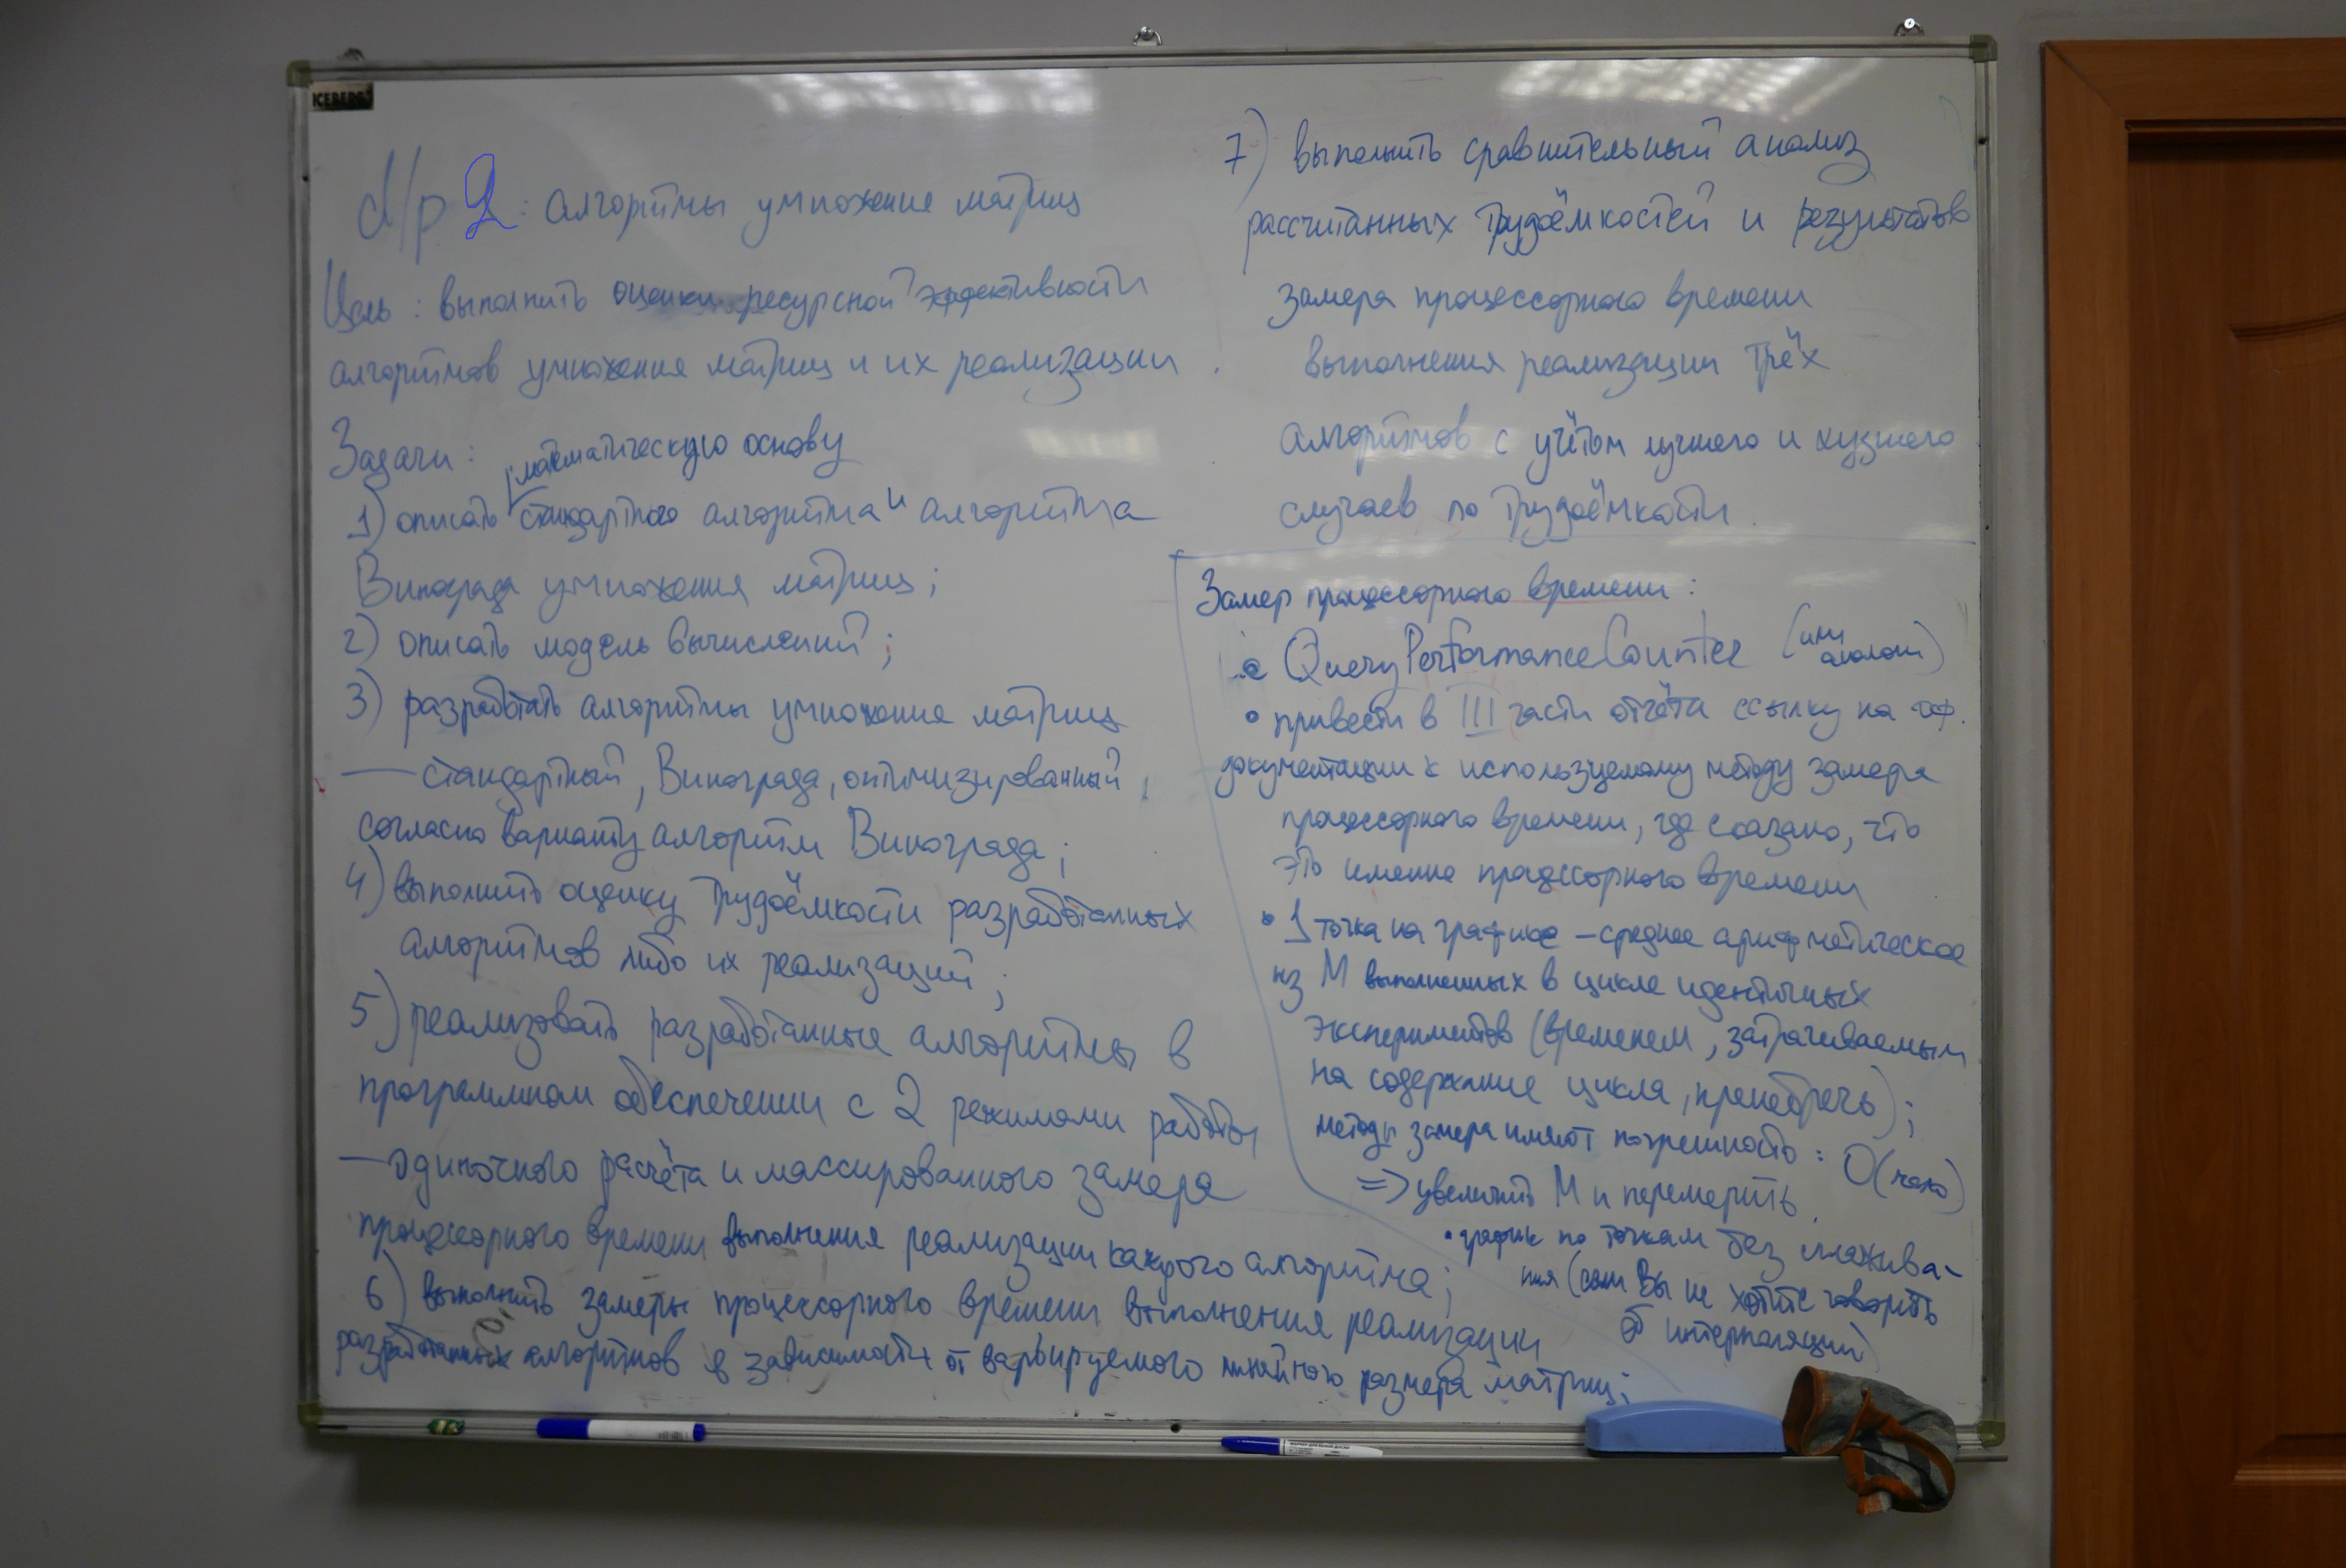 ICEBERG
Л/р 2: алгоритмы умножения матриц
Цель: выполнить оценки ресурсной эффективности
алгоритмов умножения матриц и их реализации.
Задачи:
математическую основу
1) описать стандартного алгоритма и алгоритма
Винограда умножения матриц;
2) описать модель вычислений;
3) разработать алгоритмы умножения матриц
— стандартный, Винограда, оптимизированный
согласно варианту алгоритм Винограда;
4) выполнить оценку трудоёмкости разработанных
алгоритмов либо их реализаций;
5) реализовать разработанные алгоритмы в
программном обеспечении с 2 режимами работы
— одиночного расчёта и массированного замера
процессорного времени выполнения реализации каждого алгоритма;
6) выполнить замеры процессорного времени выполнения реализации
разработанных алгоритмов в зависимости от варьируемого линейного размера матриц;
7) выполнить сравнительный анализ
рассчитанных трудоёмкостей и результатов
замера процессорного времени
выполнения реализации трёх
алгоритмов с учётом лучшего и худшего
случаев по трудоёмкости.
Замер процессорного времени:
• QueryPerformanceCounter (или
аналоги)
• привести в III части отчёта ссылку на оф.
документации к используемому методу замера
процессорного времени, где сказано, что
это именно процессорного времени
• 1 точка на графике – среднее арифметическое
из M выполненных в цикле идентичных
экспериментов (временем, затрачиваемым
на содержание цикла, пренебречь);
методы замера имеют погрешность:
=> увеличить M и перемерить.
• график по точкам без сглажива-
ния (если Вы не хотите говорить
об интерполяции)